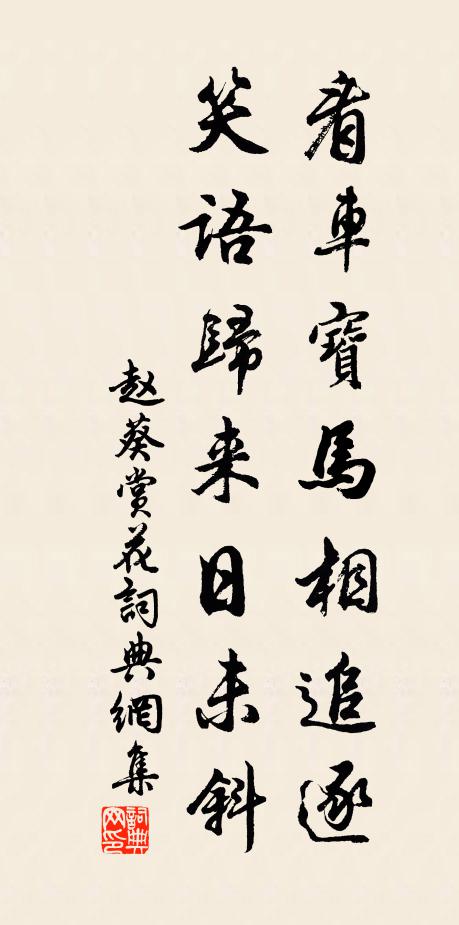 香車寶馬相追逐
笑語歸来日未斜
赵葵賞花詞典網集
詞典
网印